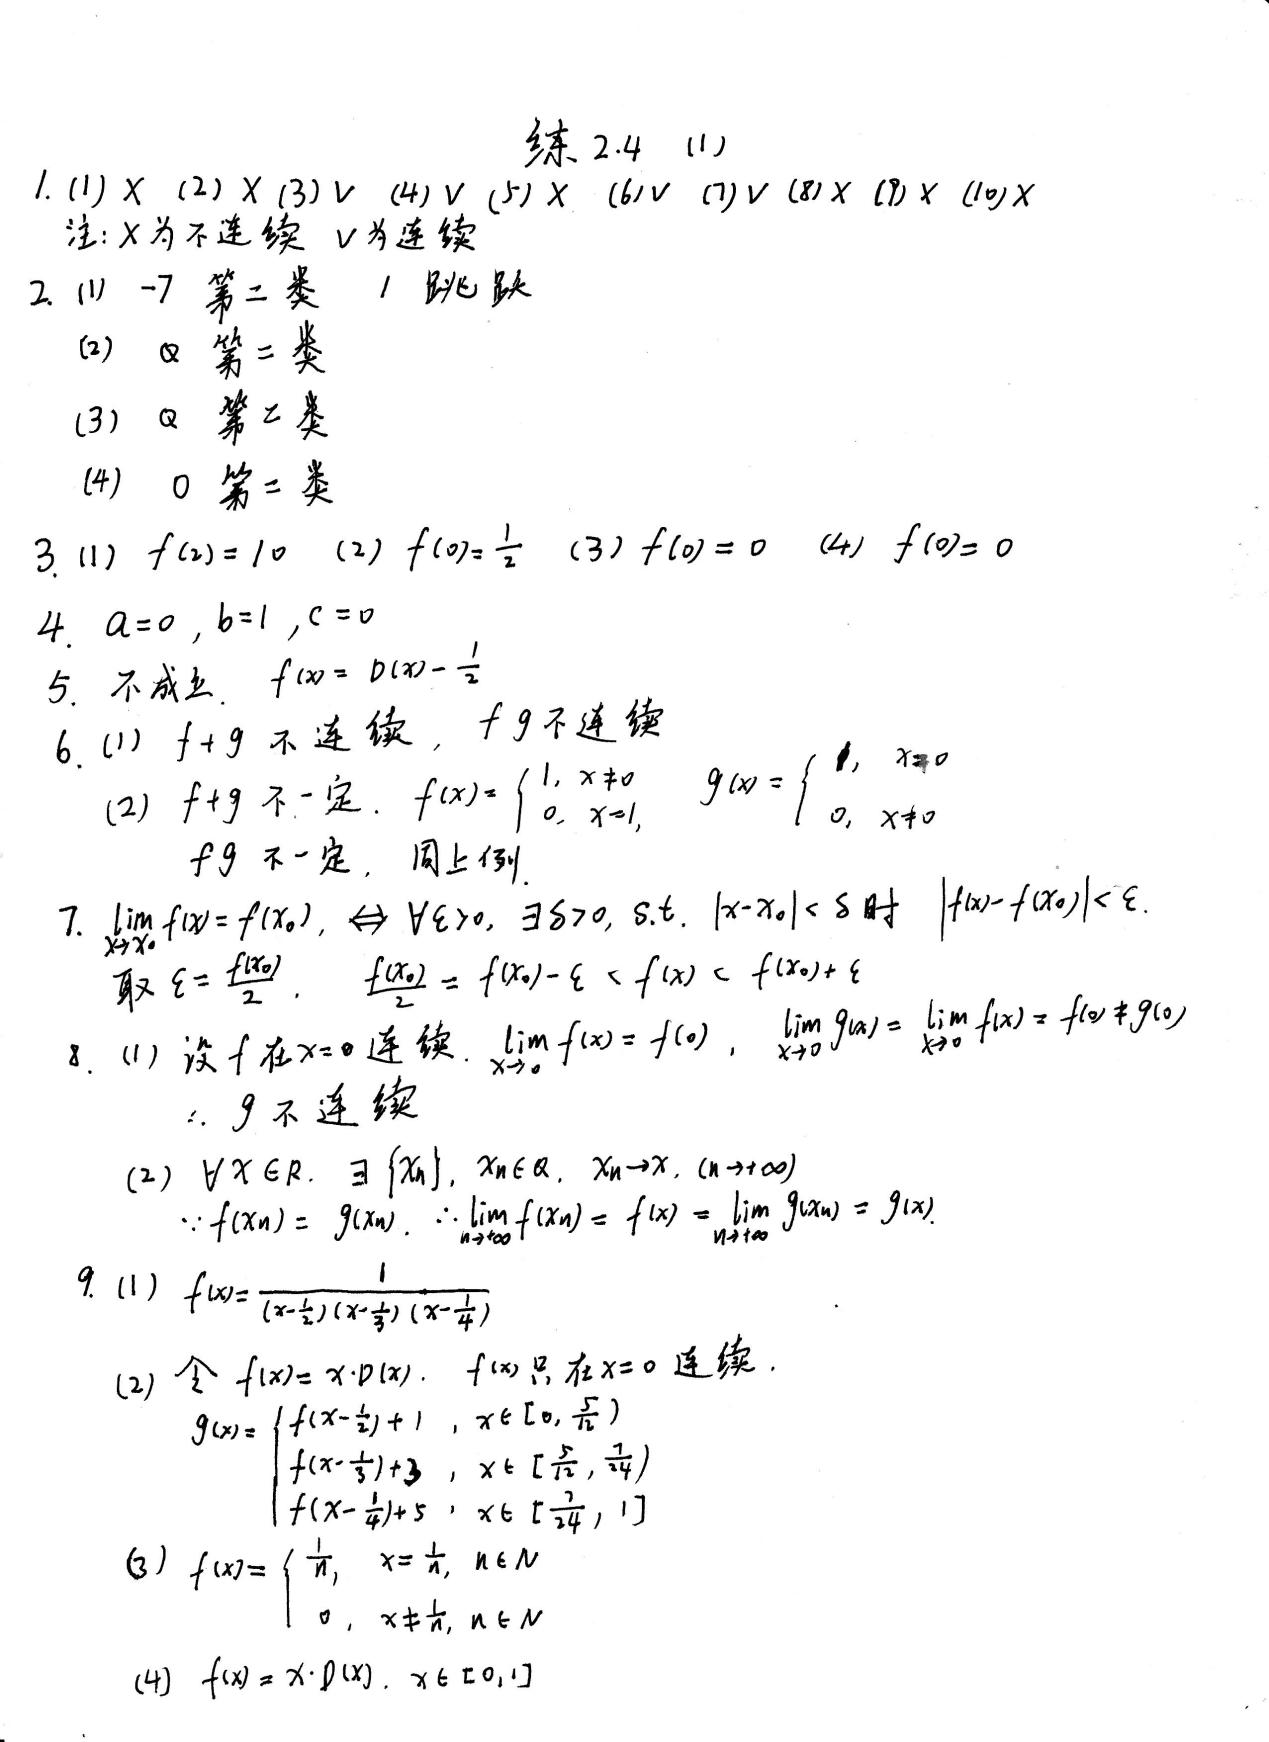 练 2.4 (1)
1. (1) X (2) X (3) V (4) V (5) X (6) V (7) V (8) X (9) X (10) X
注: X为不连续 V为连续
2. (1) -7 第二类 1 跳跃
(2) Q 第二类
(3) Q 第二类
(4) 0 第二类
3. (1) f(2)=10 (2) f(0)=1/2 (3) f(0)=0 (4) f(0)=0
4. a=0, b=1, c=0
5. 不成立. f(x)=D(x)-1/2
6. (1) f+g 不连续, fg不连续
(2) f+g 不一定. f(x)={1, x≠0; 0, x=1, g(x)={1, x=0; 0, x≠0
fg 不一定. 同上例.
7. lim_{x→x₀} f(x)=f(x₀), ⇔ ∀ε>0, ∃δ>0, s.t. |x-x₀|<δ时 |f(x)-f(x₀)|<ε.
取 ε=f(x₀)/2. f(x₀)/2=f(x₀)-ε<f(x)<f(x₀)+ε
8. (1) 设f在x=0连续. lim_{x→0} f(x)=f(0), lim_{x→0} g(x)=lim_{x→0} f(x)=f(0)≠g(0)
∴ g不连续
(2) ∀x∈R. ∃{xₙ}, xₙ∈Q, xₙ→x. (n→+∞)
∵ f(xₙ)=g(xₙ). ∴ lim_{n→+∞} f(xₙ)=f(x)=lim_{n→+∞} g(xₙ)=g(x).
9. (1) f(x)=1/((x-1/2)(x-1/3)(x-1/4))
(2) 令 f(x)=x·D(x). f(x)只在x=0连续.
g(x)={f(x-1/2)+1, x∈[0, 5/12)
f(x-1/3)+3, x∈[5/12, 7/24)
f(x-1/4)+5, x∈[7/24, 1]
(3) f(x)={1/n, x=1/n, n∈N
0, x≠1/n, n∈N
(4) f(x)=x·D(x). x∈[0,1]